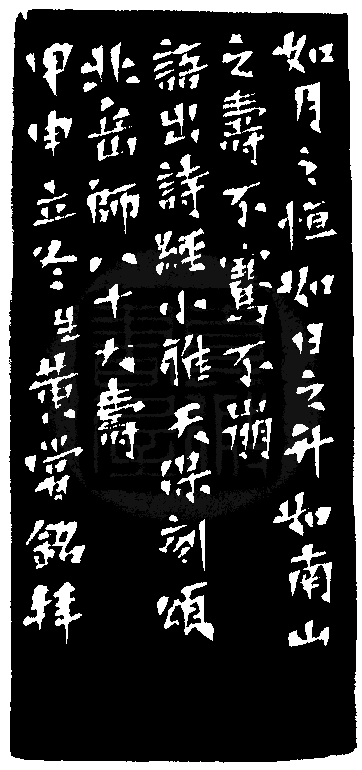 如月之恒如日之升如南山
之壽不騫不崩
語出詩經小雅天保刻頌
北岳師八十大壽
甲申立冬生黄嘗銘拜